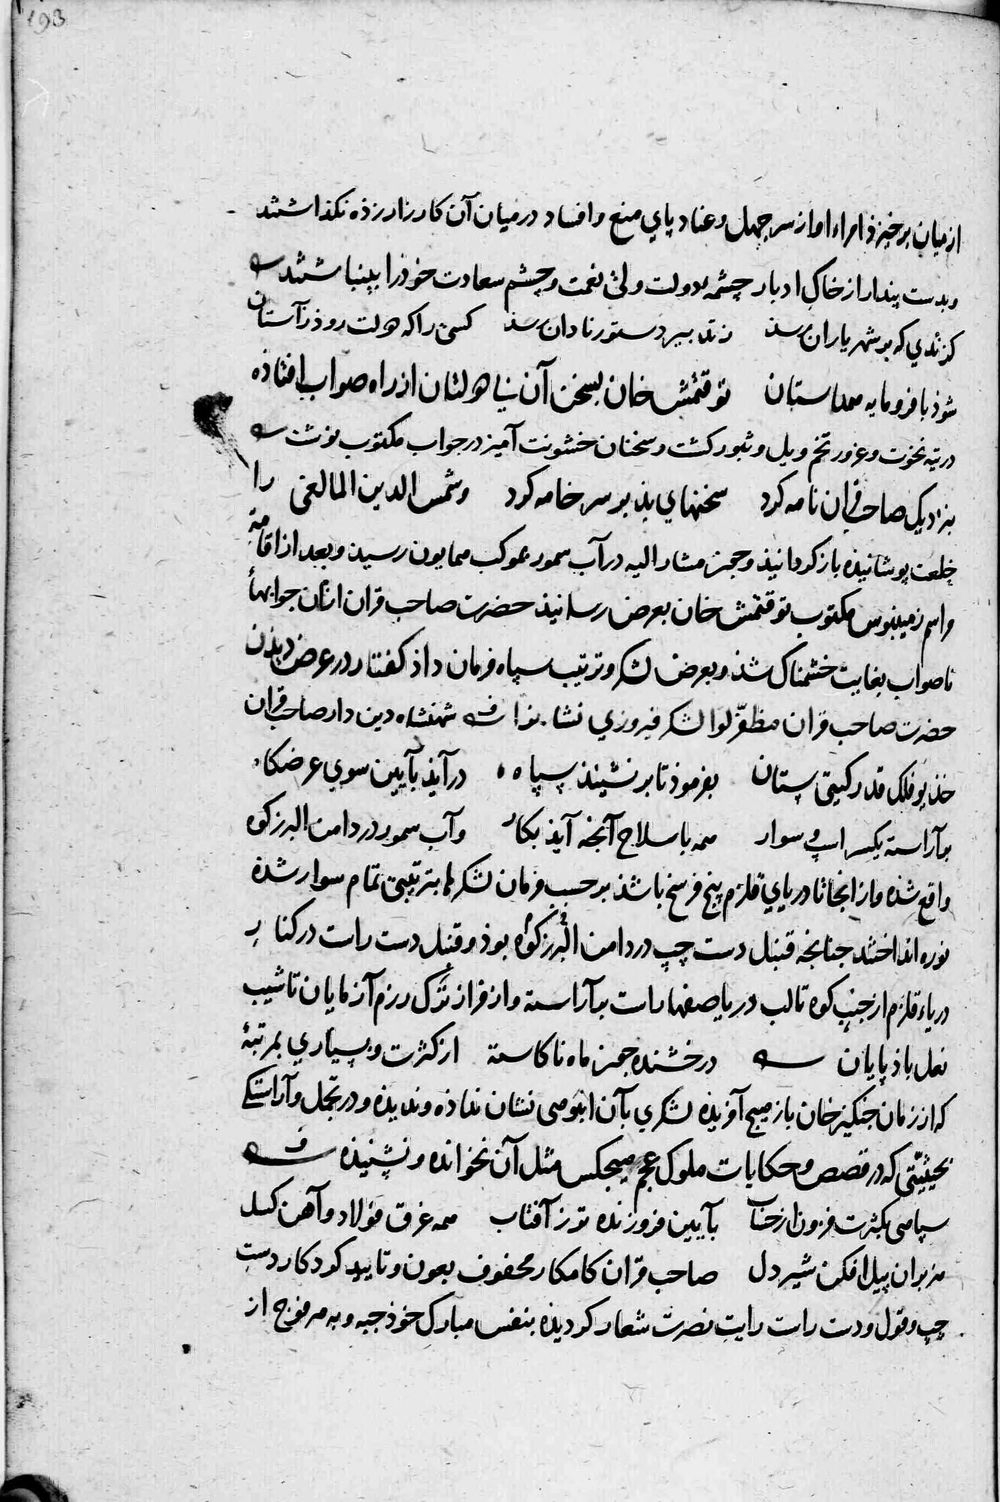 193
از میان برخیزذ امراء او از سر جهل و عناد پای منع و افساد در میان آن کار زار زذه نکذاشتند
و بدست پندار از خاک ادبار چشمه دولت ولی نعمت و چشم سعادت خوذ را بینباشتند
کزندی که بر شهریاران رسذ ز تدبیر دستور نادان رسذ کسی را که دولت روذ ز آستان
شوذ با فرومایه همداستان توقتمش خان بسخن آن بی دولتان از راه صواب افتاذه
در تیه نخوت و غرور تخم ویل و ثبور کشت و سخنان خشونت آمیز در جواب مکتوب نوشت
بنزدیک صاحب قران نامه کرد سخنهای بذ بر سر خامه کرد و شمس الدین المالغی را
خلعت پوشانیذه باز کردانیذ و چون مشار الیه در آب سمور بموکب همایون رسیذ و بعد از اقامة
مراسم زمینبوس مکتوب توقتمش خان بعرض رسانیذ حضرت صاحب قران از آن جوابهاء
ناصواب بغایت خشمناک شذ و بعرض لشکر و ترتیب سپاه فرمان داذ کفتار در عرض دیذن
حضرت صاحب قران مظفر لوا لشکر فیروزی نشان را شهنشاه دین دار صاحب قران
خذیو فلک قدر کیتی ستان بفرموذ تا بر نشینذ سپاه در آیذ بآیین سوی عرضکاه
بر آراسته یکسر اسپ و سوار همه با سلاح آنچه آیذ بکار و آب سمور در دامن البرز کوه
واقع شذه و از انجا تا دریای قلزم پنج فرسخ باشذ بر حسب فرمان لشکرها بترتیبی تمام سوار شذه
توره انداختند چنانچه قنبل دست چپ در دامن البرز کوه بوذ و قنبل دست راست در کنار
دریاء قلزم از جنب کوه تا لب دریا صفها راست بر آراسته و از فراز ترک رزم آزمایان تا شیب
نعل باذ پایان درخشنده چون ماه ناکاسته از کثرت و بسیاری بمرتبهٔ
که از زمان جنکیز خان باز هیچ آفریذه لشکری بآن انبوهی نشان نداذه و ندیذه و در تجمل و آراستکی
بحیثیتی که در قصص و حکایات ملوک عجم هیچکس مثل آن نخوانده و نشنیذه
سپاهی بکثرت فزون از حساب بآیین فروزنده تر ز آفتاب همه غرق فولاد و آهن کسل
هزبران پیل افکن شیر دل صاحب قران کامکار محفوف بعون و تایید کردکار دست
چپ و قول و دست راست رایت نصرت شعار کردیذه بنفس مبارک خوذ جبه و بهر فوج از